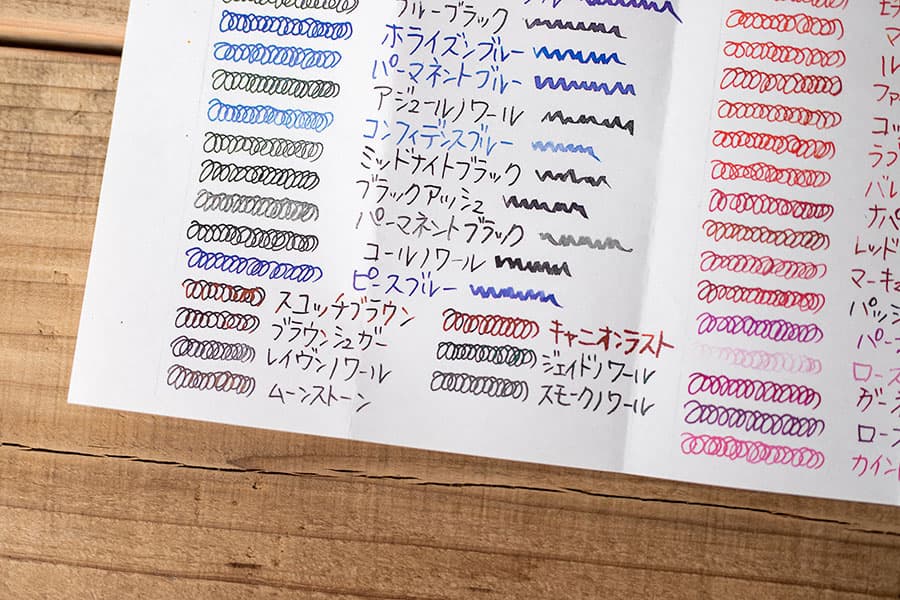 ブルーブラック
ホライズンブルー
パーマネントブルー
アジュールノワール
コンフィデンスブルー
ミッドナイトブラック
ブラックアッシュ
パーマネントブラック
コールノワール
ピースブルー
スコッチブラウン
ブラウンシュガー
レイヴンノワール
ムーンストーン
キャニオンラスト
ジェイドノワール
スモークノワール
マ
ル
ファ
コッ
ラブ
バレ
ナパ
レッド
マーキュ
パッシ
パー
ロース
ガー
ロー
カイン